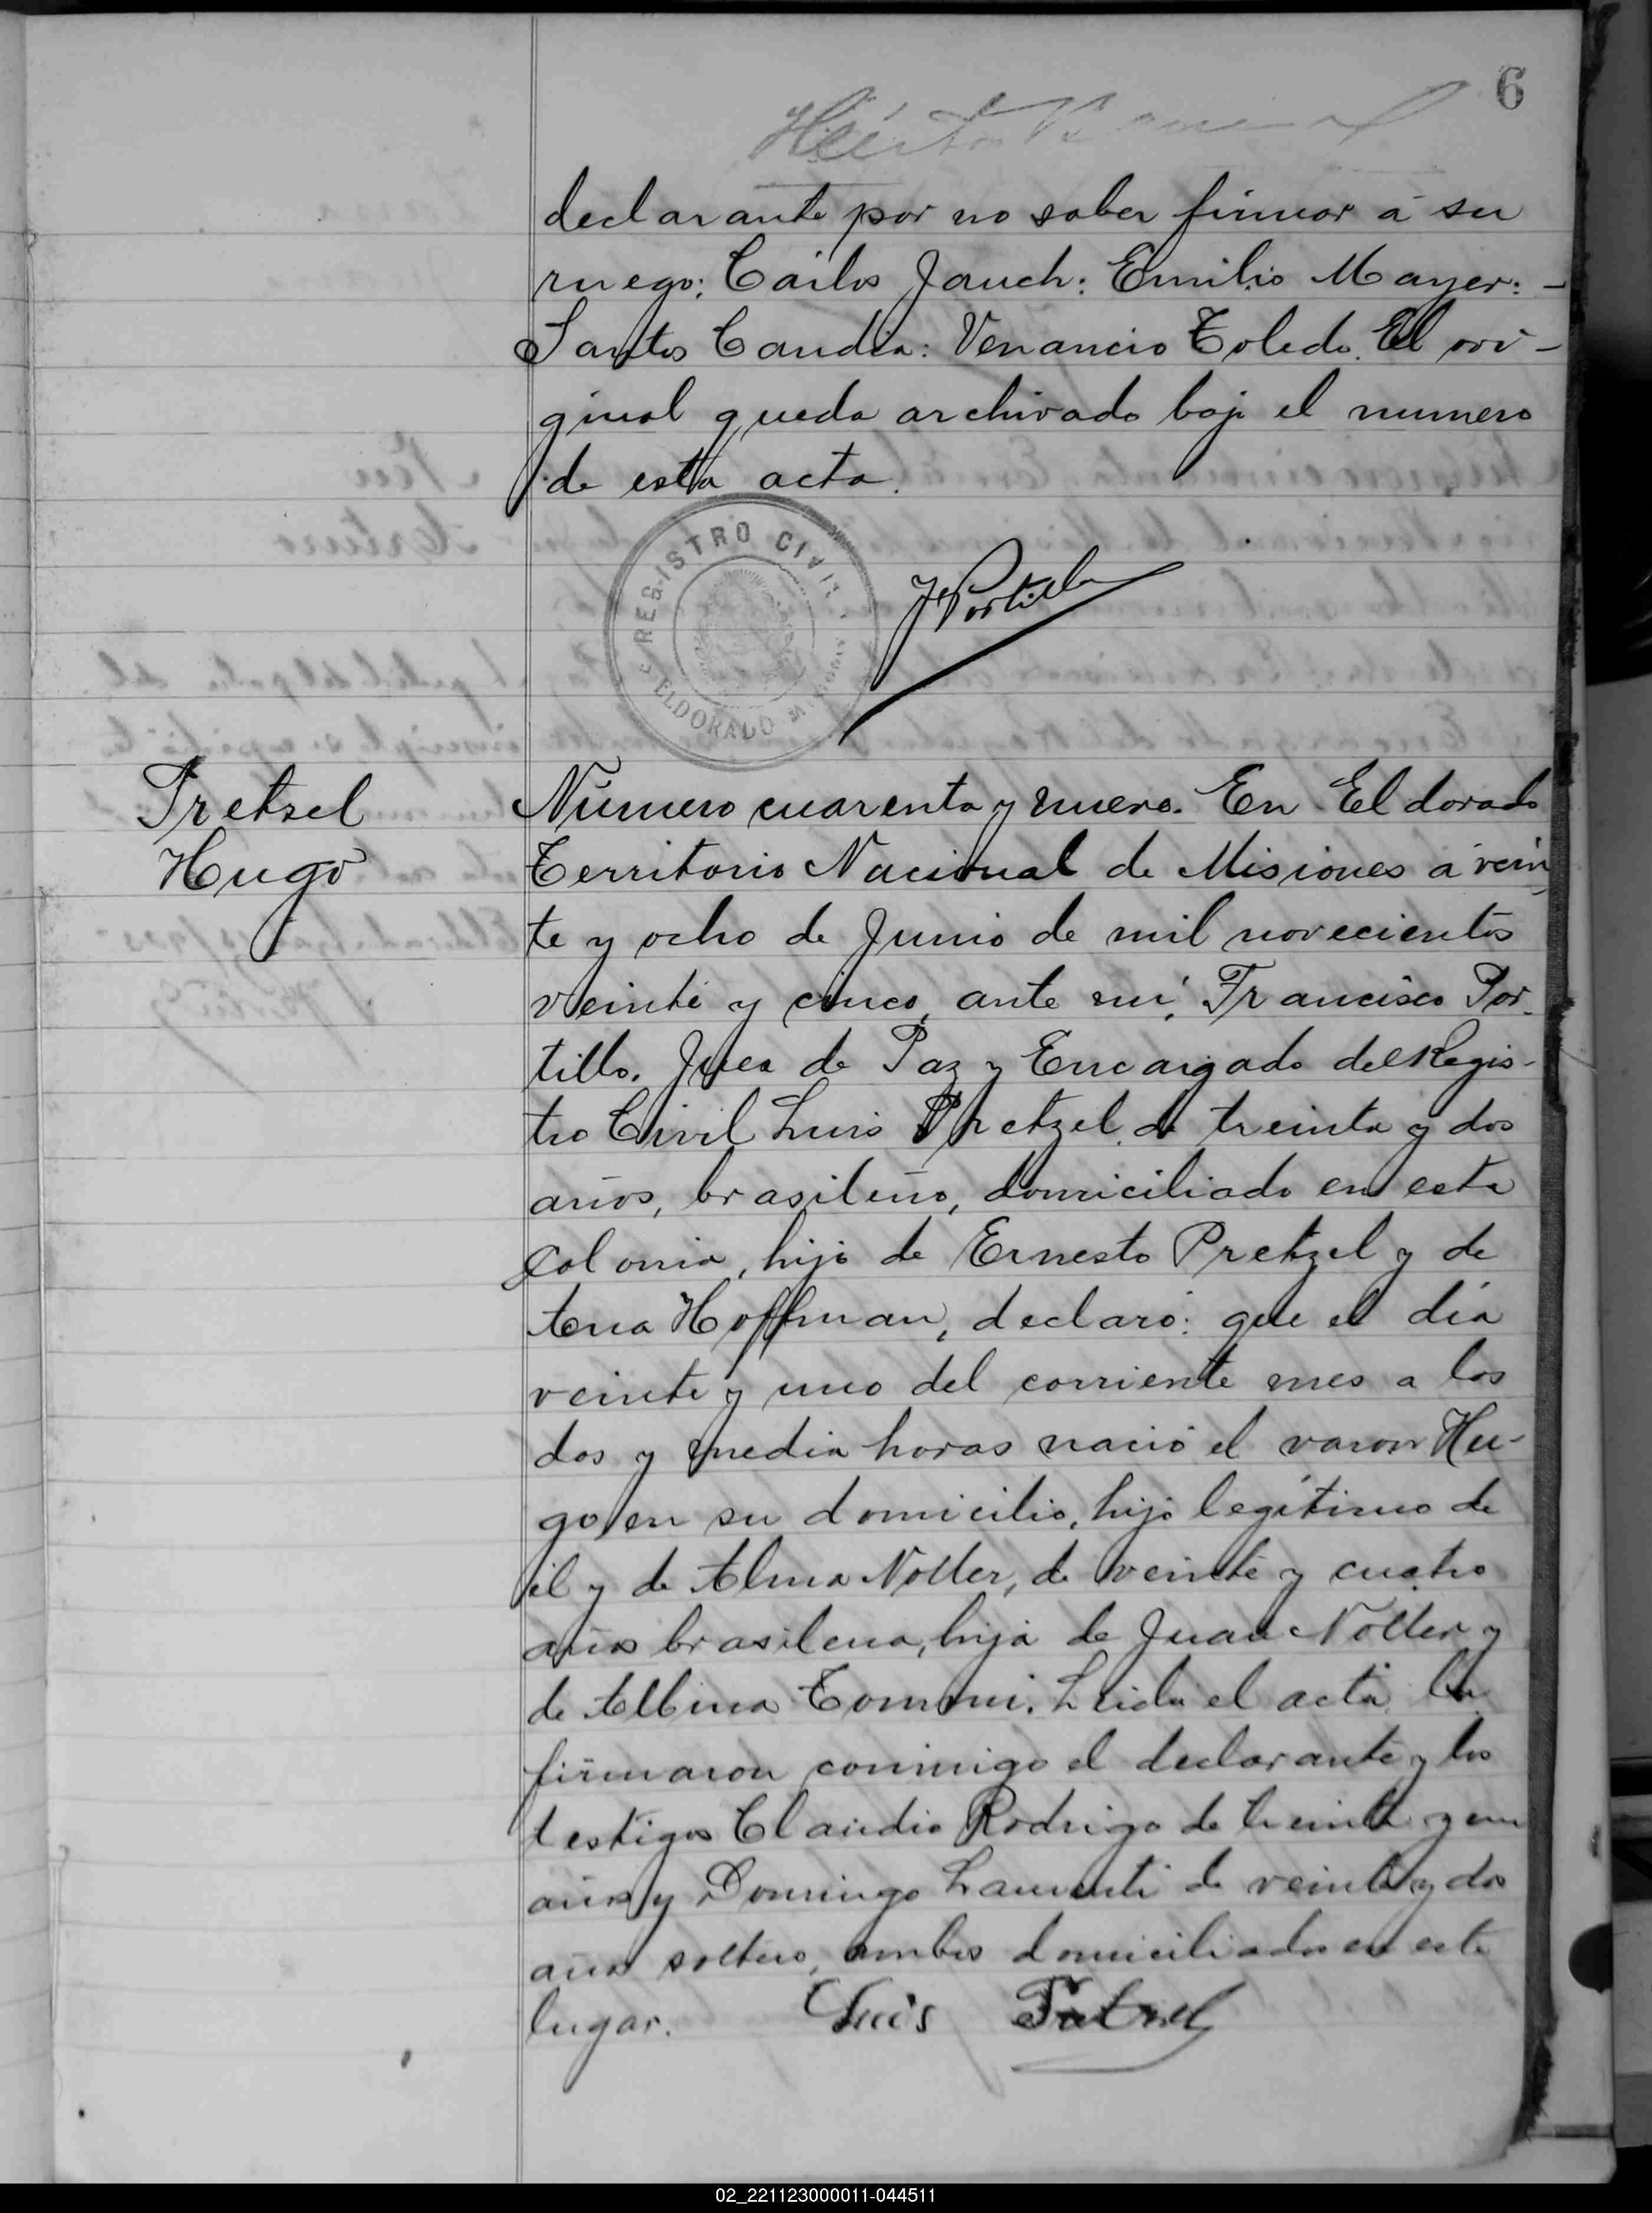 6
declarante por no saber firmar á su
ruego: Carlos Jauch: Emilio Mayer: -
Santos Candia: Venancio Toledo. El ori-
ginal queda archivado bajo el numero
de esta acta.
REGISTRO CIVIL
ELDORADO MISIONES
J Portillo
Pretzel
Hugo
Número cuarenta y nueve. En Eldorado
Territorio Nacional de Misiones á vein
te y ocho de Junio de mil novecientos
veinte y cinco, ante mí, Francisco Por-
tillo. Juez de Paz y Encargado del Regis-
tro Civil Luis Pretzel de treinta y dos
años, brasileño, domiciliado en esta
Colonia, hijo de Ernesto Pretzel y de
Ana Hoffman, declaró: que el día
veinte y uno del corriente mes a las
dos y media horas nació el varon Hu-
go en su domicilio, hijo legítimo de
él y de Alma Noller, de veinte y cuatro
años brasilena, hija de Juan Noller y
de Albina Tommi. Leida el acta la
firmaron conmigo el declarante y los
testigos Claudio Rodrigo de treinta y un
años y Domingo de veinte y dos
años soltero, ambos domiciliados en este
lugar. Luis Pretzel
02_221123000011-044511